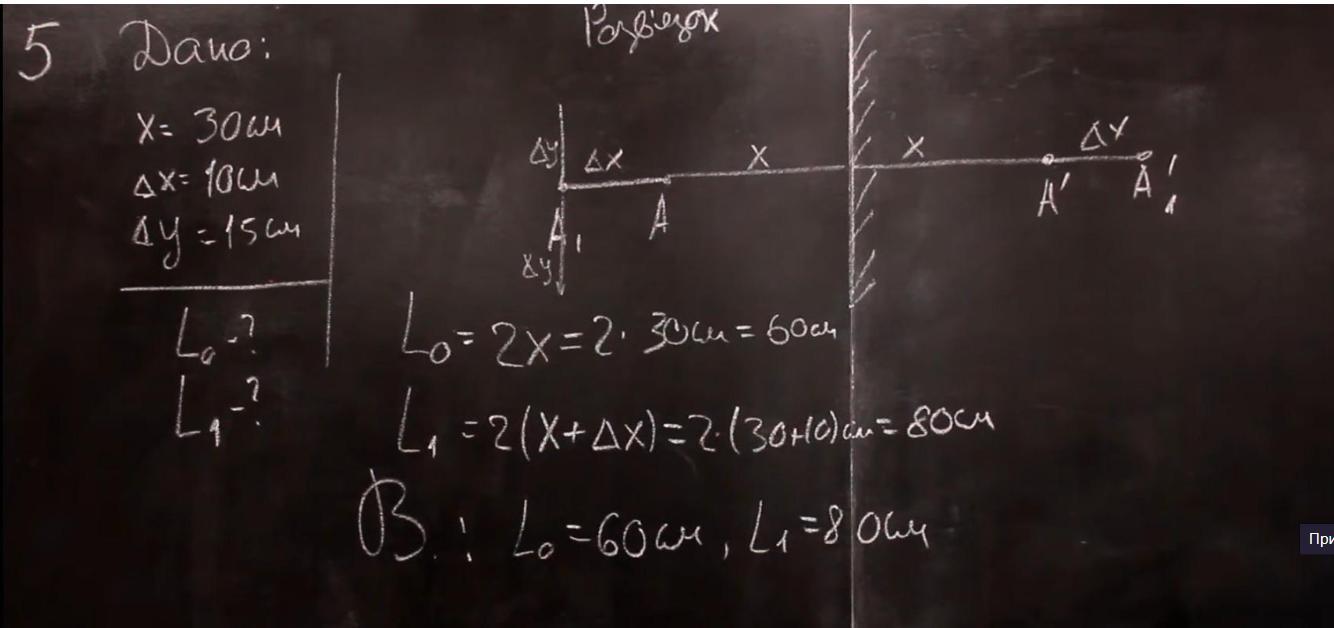 5 Дано:
Розв'язок
x = 30 см
Δx = 10 см
Δy = 15 см
L₀ - ?
L₁ - ?
Δy Δx x x Δx
A₁ A A' A'₁
Δy
L₀ = 2x = 2 · 30 см = 60 см
L₁ = 2(x + Δx) = 2 · (30+10) см = 80 см
В.: L₀ = 60 см, L₁ = 80 см
При